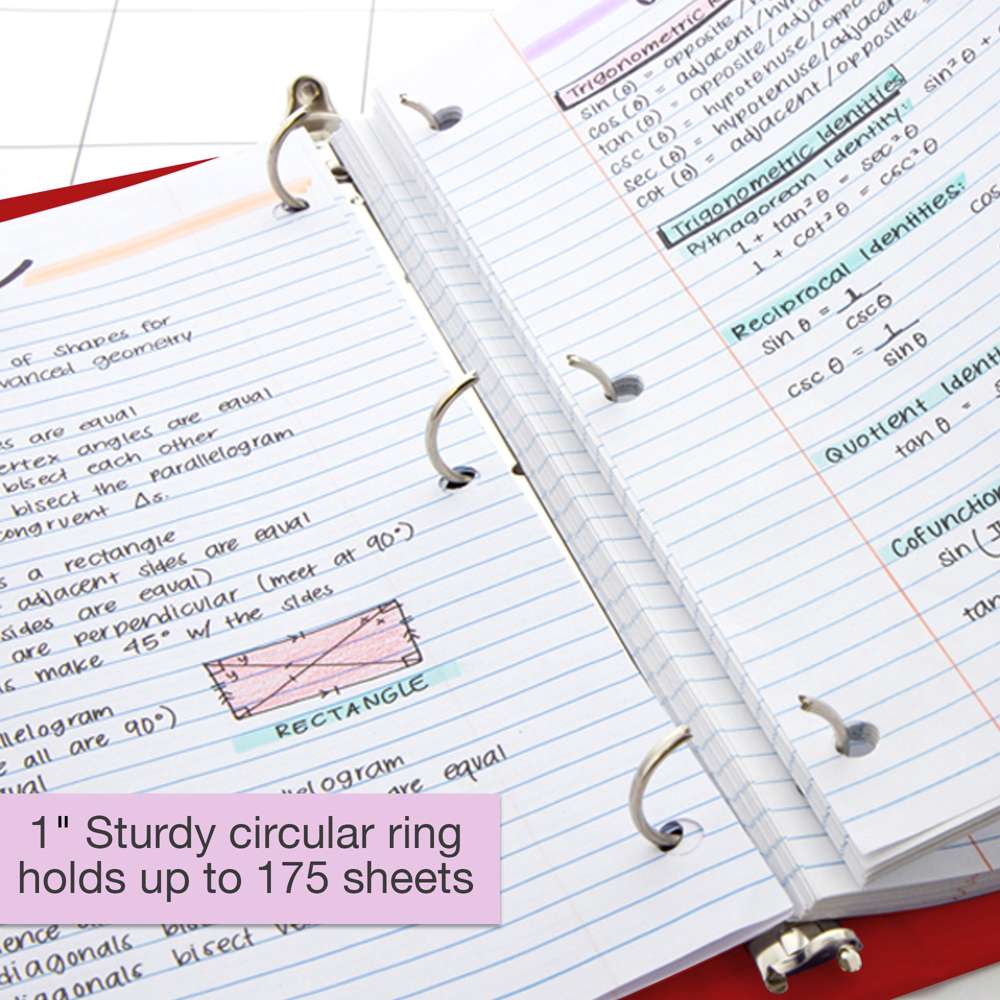 of shapes for
vanced geometry
es are equal
ertex angles are equal
bisect each other
bisect the parallelogram
congruent Δs.
s a rectangle
adjacent sides are equal
sides are equal)
are perpendicular (meet at 90°)
make 45° w/ the sides
y y x x
RECTANGLE
llelogram
all are 90°)
llelogram
are equal
1" Sturdy circular ring
holds up to 175 sheets
diagonals
diagonals bisect
Trigonometric
sin (θ) = opposite /
cos (θ) = adjacent/hy
tan (θ) = opposite/adjac
csc (θ) = hypotenuse/oppo
sec (θ) = hypotenuse/adjacen
cot (θ) = adjacent /opposite
Trigonometric Identities
Pythagorean Identity: sin²θ +
1 + tan²θ = sec²θ
1 + cot²θ = csc²θ
Reciprocal Identities:
sin θ = 1 cos
cscθ
csc θ = 1
sinθ
Quotient Identi
tan θ =
Cofunction
sin (
tan